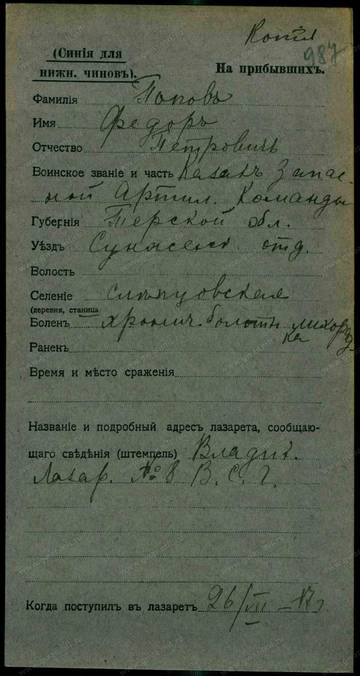 Копія
987
(Синія для
нижн. чиновъ).
На прибывшихъ.
Фамилія Поповъ
Имя Федоръ
Отчество Петровичъ
Воинское званіе и часть Казакъ Запас-
ной Артил. Команды
Губернія Терской обл.
Уѣздъ Сунженск отд.
Волость
Селеніе Слѣпцовская
(деревня, станица)
Боленъ хронич. болотн лихорад
ка
Раненъ
Время и мѣсто сраженія
Названіе и подробный адресъ лазарета, сообщаю-
щаго свѣдѣнія (штемпель) Владик.
Лазар. № 8 В. С. Г.
Когда поступилъ въ лазаретъ 26/VII—17 г